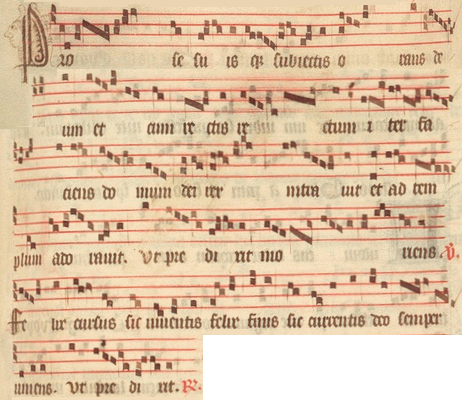 Pro se su is qz subiectis o rans de
um et cum re ctis re ctum i ter fa
ciens do mum dei rex intra uit et ad tem
plum ado rauit. Vt pre di xit mo riens. V.
Fe lix cursus sic uiuentis felix finis sic currentis deo semper
uiuens. Vt pre di xit. R.